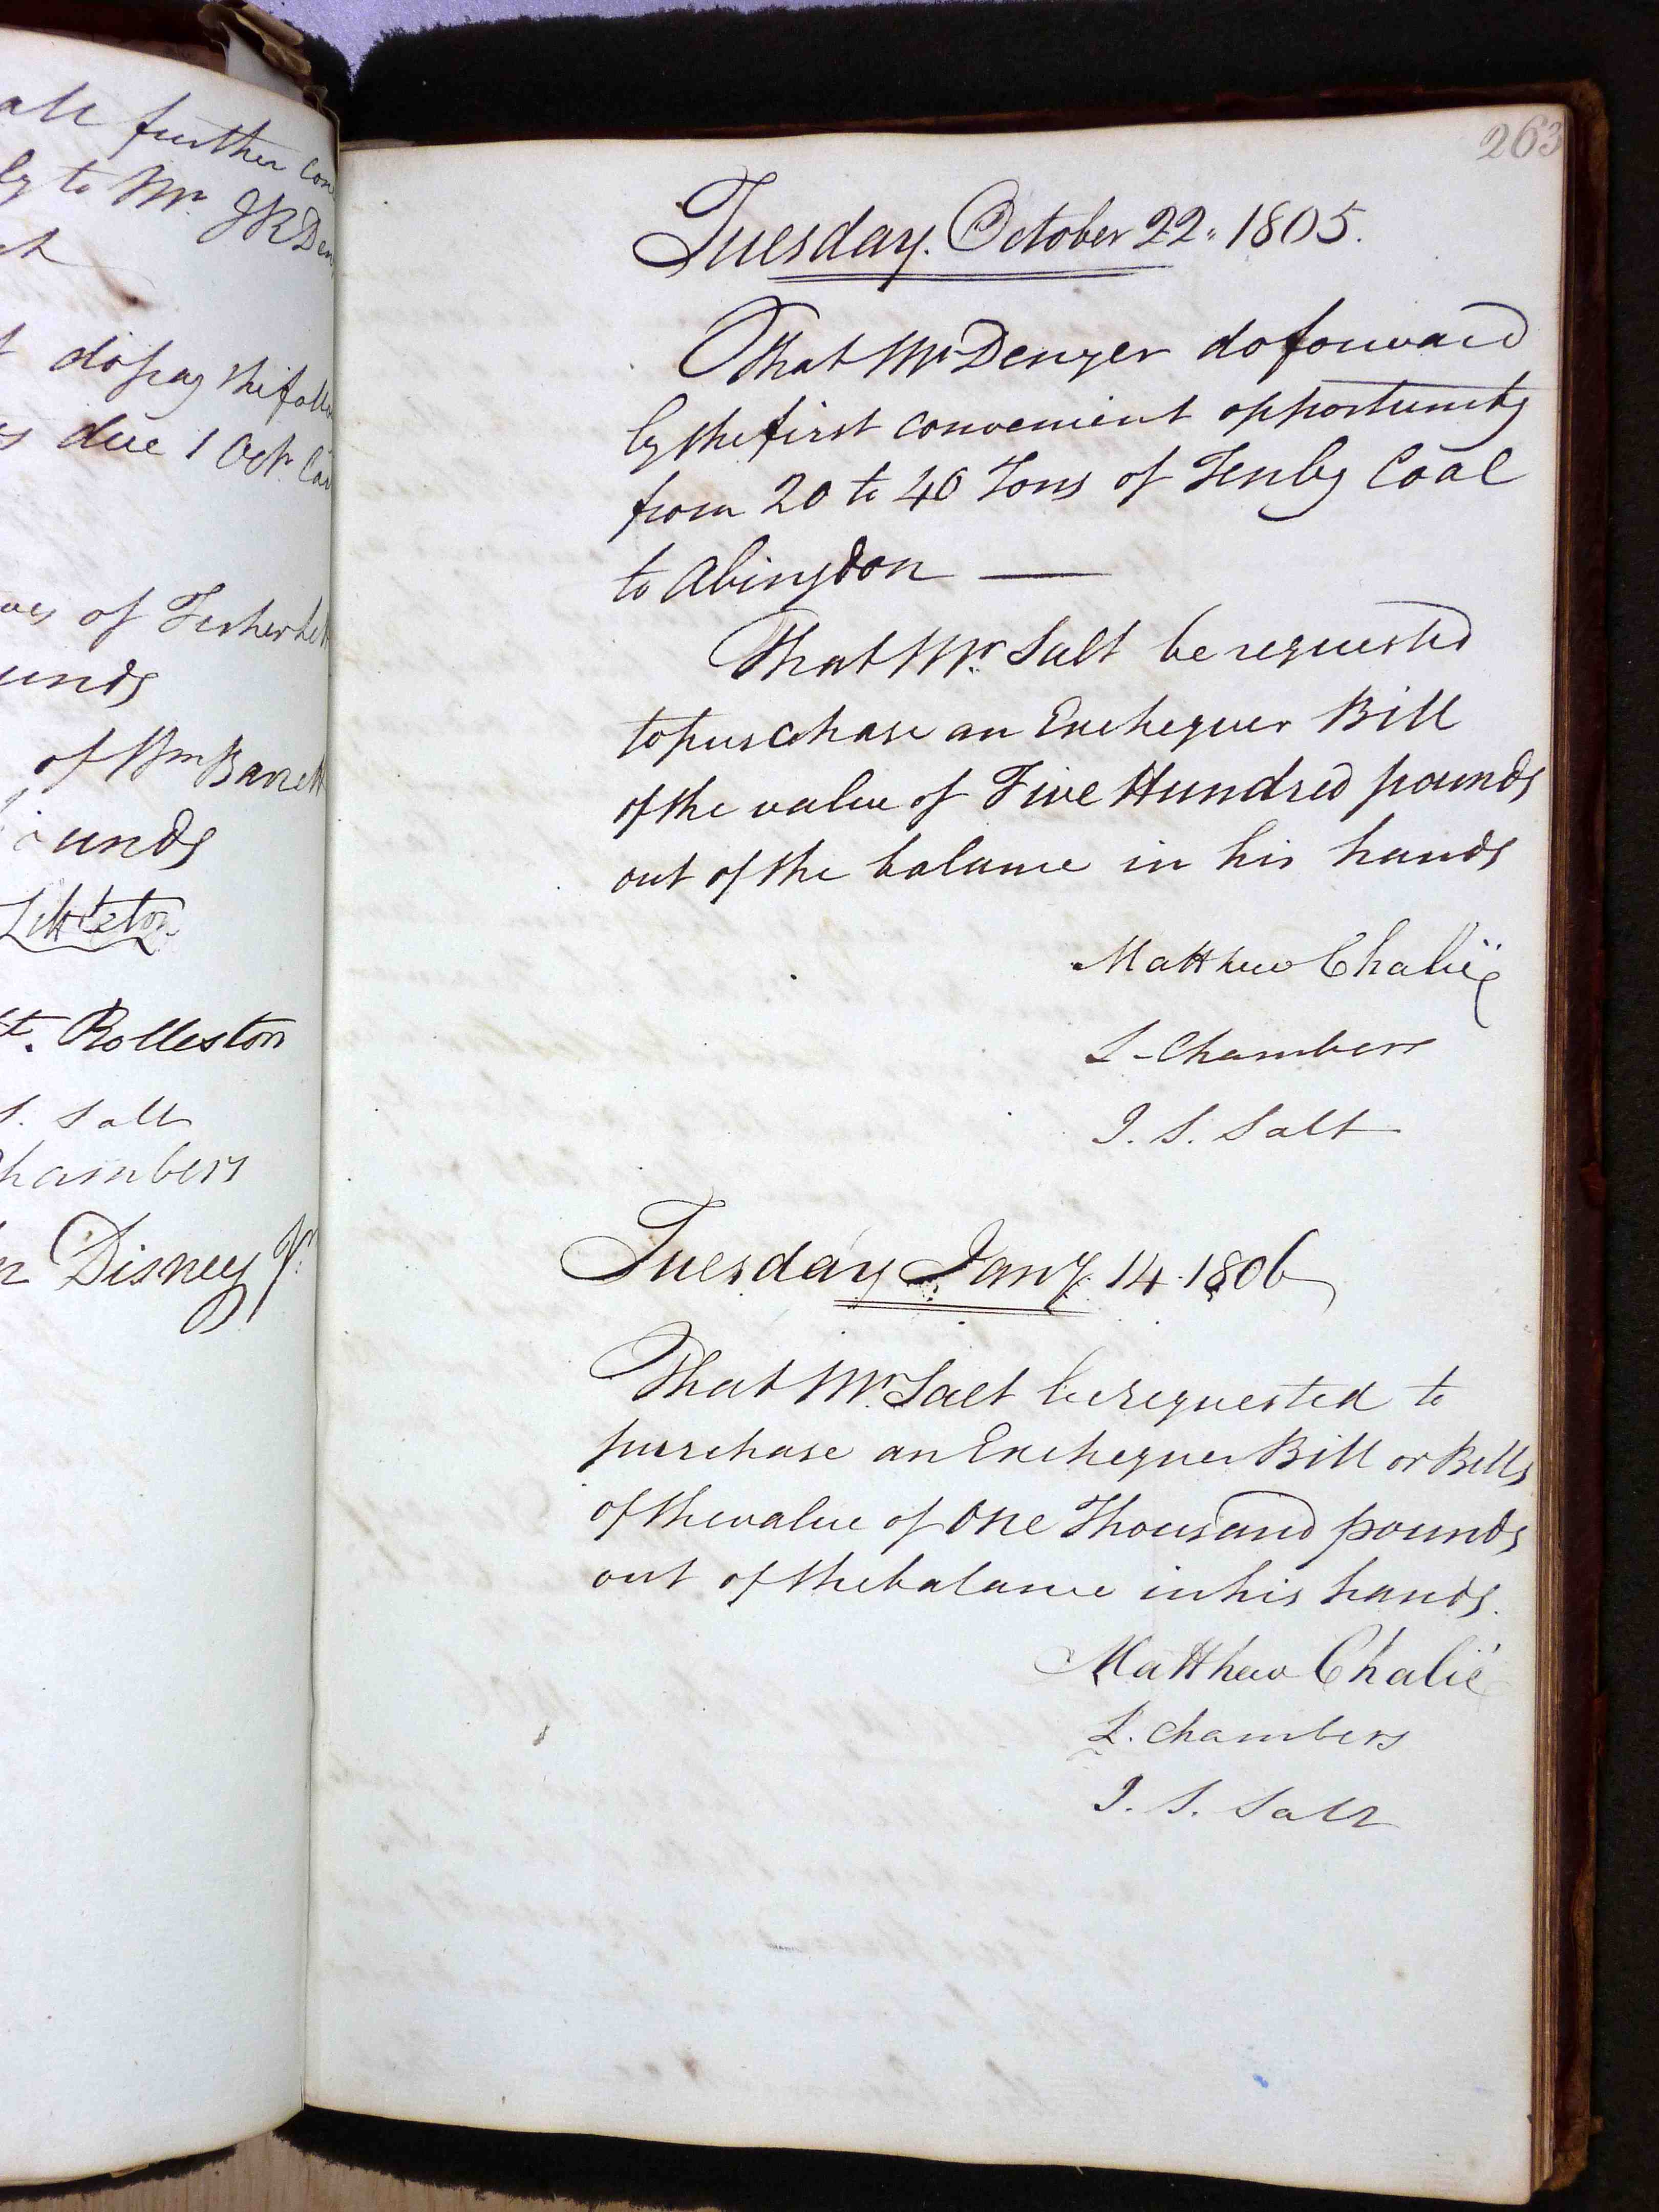 all further con
ly to Mr. JR Den
dopay the follo
due 1 Octr.
of
unds
of Wm Barrett
ounds
Littleton
Rolleston
S. Salt
Chambers
Disney Jr.
263
Tuesday. October 22. 1805.
That Mr Denyer do forward
by the first convenient opportunity
from 20 to 40 Tons of Tenby Coal
to Abingdon —
That Mr. Salt be requested
to purchase an Exchequer Bill
of the value of Five Hundred pounds
out of the balance in his hands
Matthew Chalië
L - Chambers
J. S. Salt
Tuesday Jany. 14. 1806
That Mr. Salt be requested to
purchase an Exchequer Bill or Bills
of the value of One Thousand pounds
out of the balance in his hands.
Matthew Chalié
L. Chambers
J. S. Salt